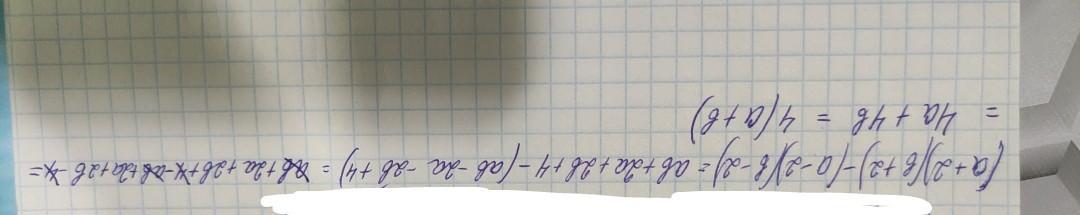 (a+2)(b+2)-(a-2)(b-2)=ab+2a+2b+4-(ab-2a-2b+4)=ab+2a+2b+4-ab+2a+2b-4=
=4a+4b=4(a+b)